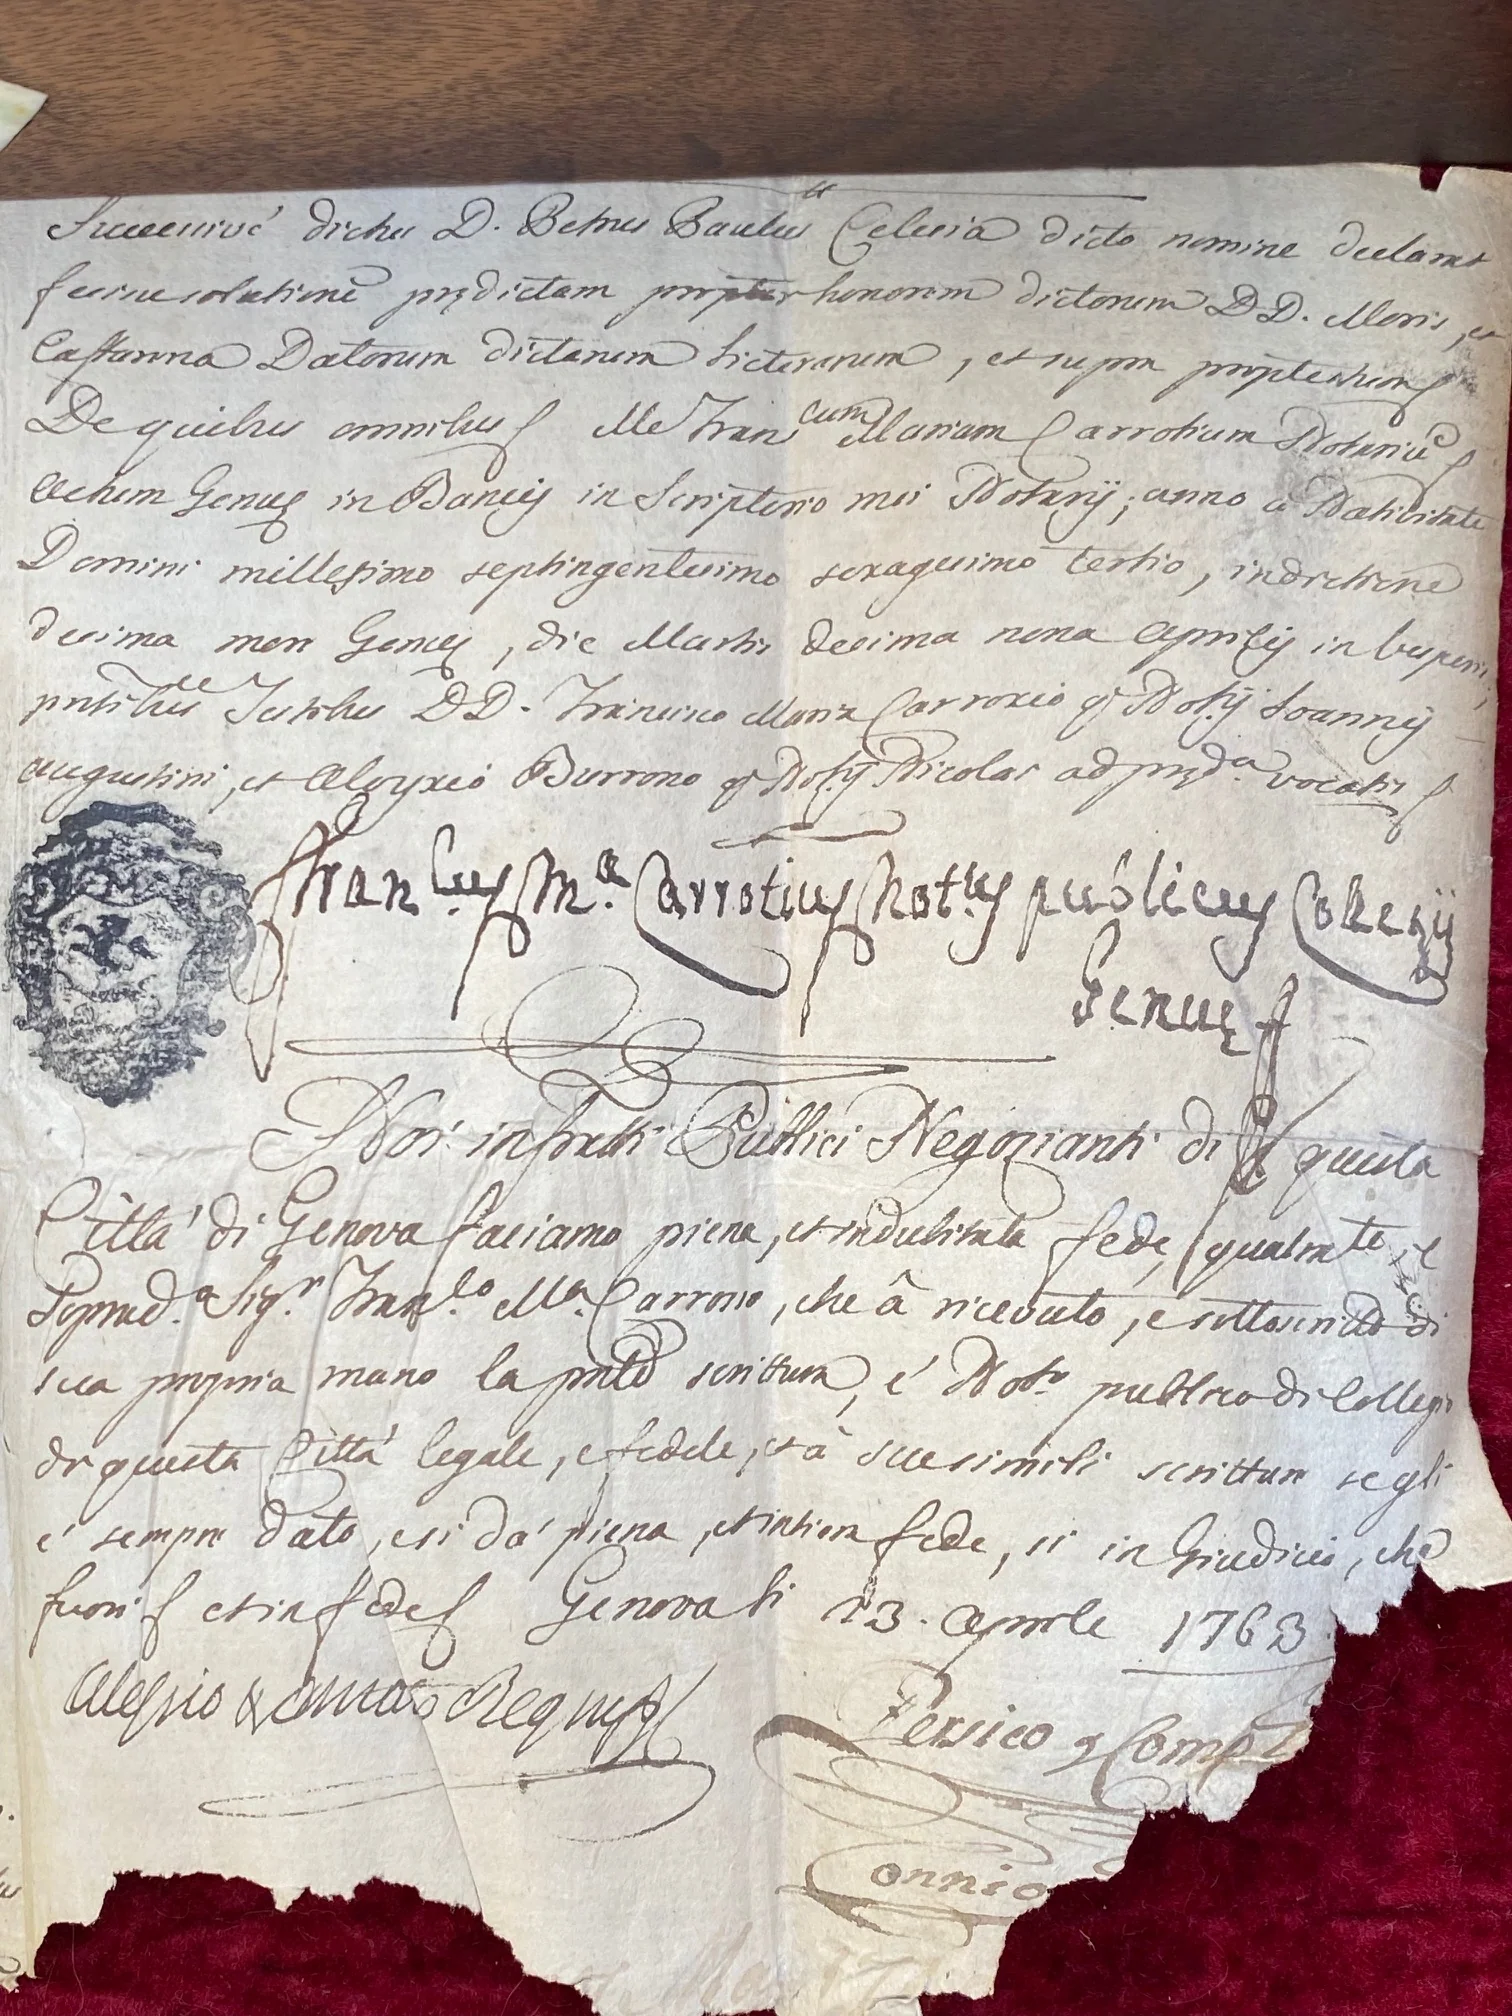 Successivè dictus D. Petrus Paulus Celesia dicto nomine declarat
fecisse solutionē prędictam propter honorem dictorum DD. Moris, et
Castanna Datorum dictarum litterarum, et supra protestum
De quibus omnibus Me Fran cum Mariam Carrotium Notariū
Actum Genuę in Bancis in Scriptorio mei Notarij; anno a Nativitate
Domini millesimo septingentesimo sexagesimo tertio, indictione
decima more Genuę, die Martis decima nona Aprilis in vesperis,
pntibus Testibus DD. Francisco Maria Carroxio q Notij Joannis
Augustini, et Aloysio Burrono q Notij Nicolai ad pręda vocatis
Fran.cus M.a Carrotius Not.us publicus Collegij
Genuę
Noi infratti Publici Negozianti di questa
Città di Genova facciamo piena, et indubitata fede, qualmte, il
Soprad.o Sig.r Fran.co M.a Carrosio, che â ricevuto, e sottoscritto di
sua propria mano la pnte scrittura, é Noto publico di Collegio
di questa Città legale, e fedele, et â sue simili scritture se gli
é sempre dato, e si dà piena, et intiera fede, sì in Giudicio, che
fuori et in fede Genova li 23. Aprile 1763.
Alessio &
Persico q Comp
onnio